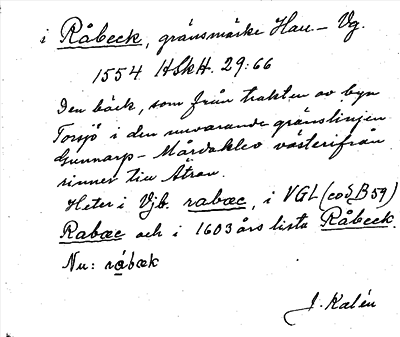 i Råbeck, gränsmärke Hall – Vg.
1554 HSkH. 29:66
Den bäck, som från trakten av byn
Torsjö i den nuvarande gränslinjen
Gunnarp – Mårdaklev västerifrån
rinner till Ätran.
Heter i Vjb. rabæc, i VGL (cod B 59)
Rabæc och i 1603 års lista Råbeck.
Nu: råbæk
J. Kalén